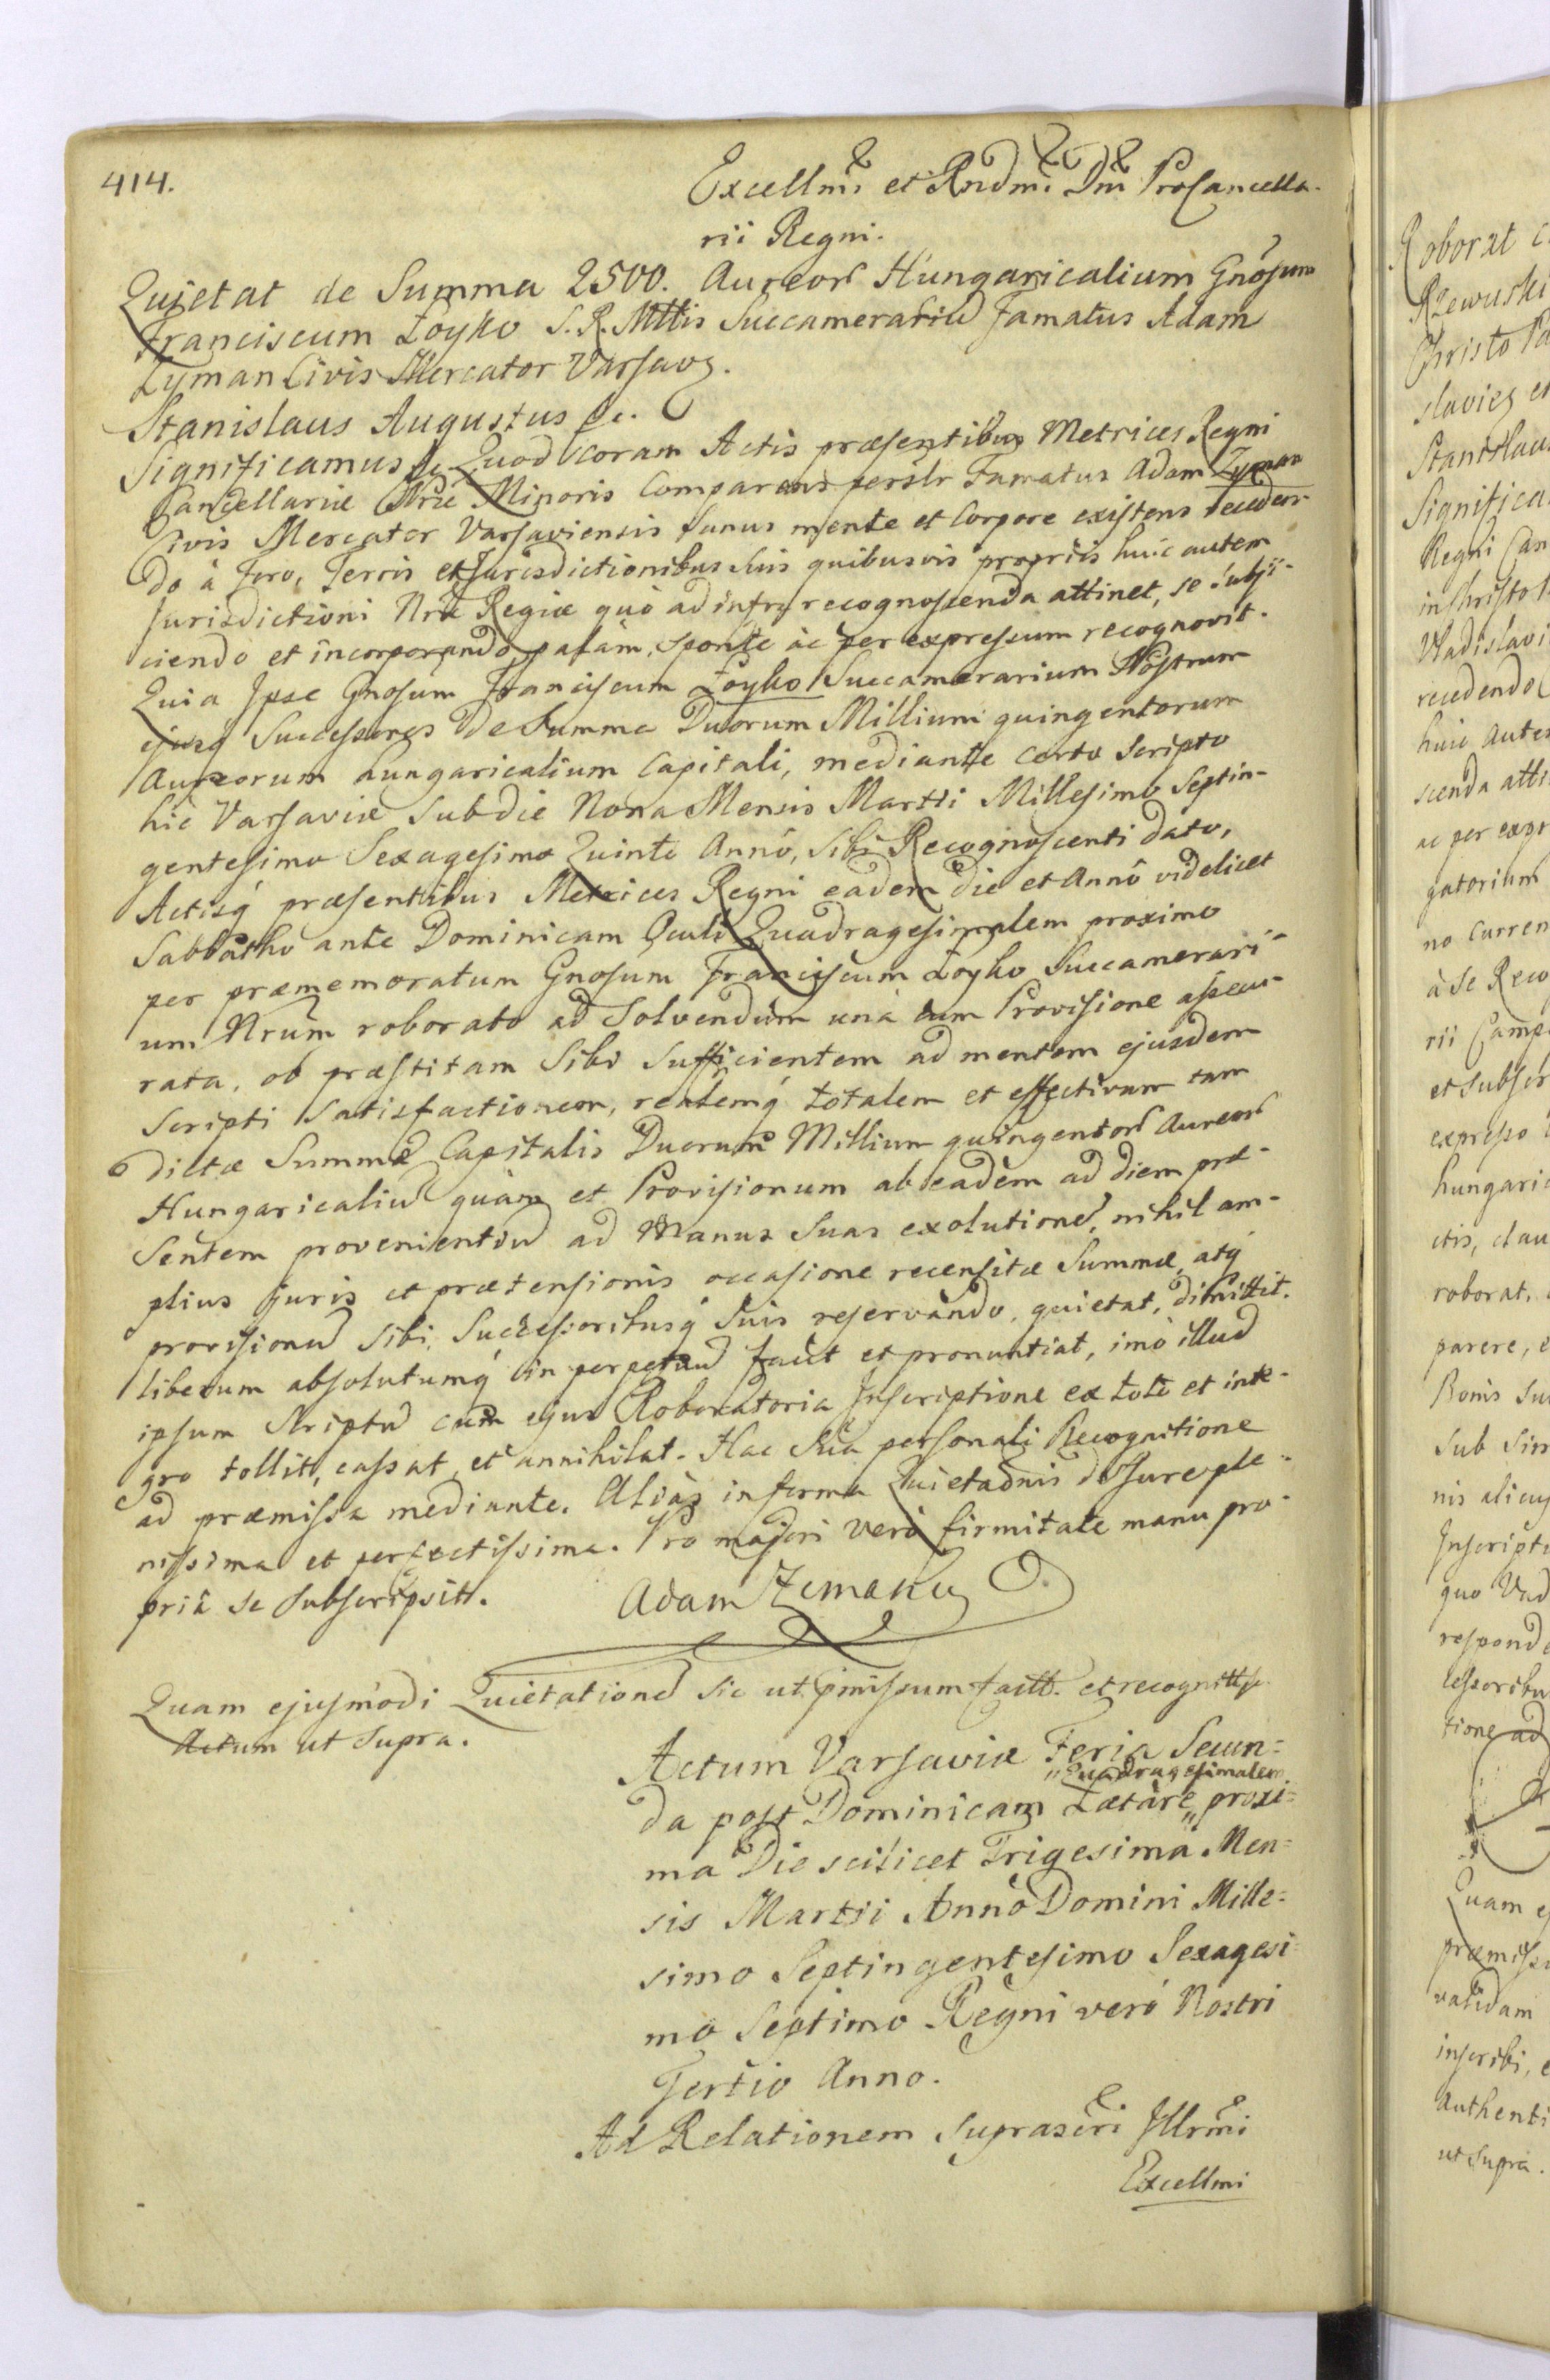 414.
Excellmi et Rndmi Dni ProCancella-
rii Regni.
Quietat de Summa 2500. Aureor Hungaricalium Gnosum
Franciscum Łoyko S. R. Mttis Succamerariu Famatus Adam
Zyman Civis Mercator Varsav.
Stanislaus Augustus &c.
Significamus &c. Quod coram Actis præsentibus Metrices Regni
Cancellariæ Nræ Minoris Comparens persłr Famatus Adam Zyman
Civis Mercator Varsaviensis Sanus mente et Corpore existens receden-
do à Foro, Terris et Jurisdictionibus Suis quibusvis propriis huic autem
Jurisdictioni Nræ Regiæ quò ad infra recognoscenda attinet, se subji-
ciendo et incorporando palàm, sponte àc per expressum recognovit.
Quia Ipse Gnosum Franciscum Łoyko Succamerarium Nostrum
ejusq Successores de Summa Duorum Millium quingentorum
Aureorum hungaricalium Capitali, mediante certo Scripto
hic Varsaviæ Sub die Nona Mensis Martii Millesimo Septin-
gentesimo Sexagesimo Quinto Annô, Sibi Recognoscenti dato,
Actisq præsentibus Metrices Regni eadem die et Annô videlicet
Sabbatho ante Dominicam Oculi Quadragesimalem proximo
per præmemoratum Gnosum Franciscum Łoyko Succamerari-
um Nrum roborato ad Solvendum unà cum Provisione assecu-
rata, ob præstitam Sibi Sufficientem ad mentem ejusdem
Scripti Satisfactionem, realemq totalem et effectivam tam
dictæ Summæ Capitalis Duorum Millium quingentor Aureor
Hungaricaliu quàm et Provisionum ab eadem ad diem præ-
sentem provenientiu ad Manus Suas exolutione, nihil am-
plius Juris et prætensionis occasione recensitæ Summæ, atq
provisionu Sibi, Successoribusq Suis reservando, quietat, dimittit.
liberum absolutumq in perpetuu facit et pronuntiat, imò illud
ipsum Scriptu cum ejus Roboratoria Inscriptione ex toto et inte-
gro tollit, cassat, et annihilat. Hac Sua personali Recognitione
ad præmissa mediante. Aliàs in forma Quietaonis de Jure ple-
nissima et perfectissima. Pro majori verò firmitate manu pro-
priâ se Subscripsit.
Adam Zemanu
Quam ejusmodi Quietatione sic ut pmissum factt. et recognitt
Actum ut Supra.
Actum Varsaviæ Feria Secun=
da post Dominicam Lætàre „Quadragesimalem„ proxi=
ma Die scilicet Trigesima Men=
sis Martii Annò Domini Mille=
simo Septingentesimo Sexagesi=
mo Septimo Regni verò Nostri
Tertio Anno.
Ad Relationem suprascri Illrmi
Excellmi
Roborat
Rzewuski
Christo
slavie et
Stanislaus
Significa
Regni Can
in Christo
Vladislavi
recedendo
huic Autem
scenda atti
ac per expr
gatorium
no Curren
à Se Reco
rii Camp
et Subscr
expresso
hungaric
ctis, clau
roborat,
parere, e
Bonis Su
Sub Sim
nis alicuj
Inscripti
quo Vad
responde
cessoribu
tione ad
Quam ej
præmiss
validam
inscribi, e
Authenti
ut Supra.